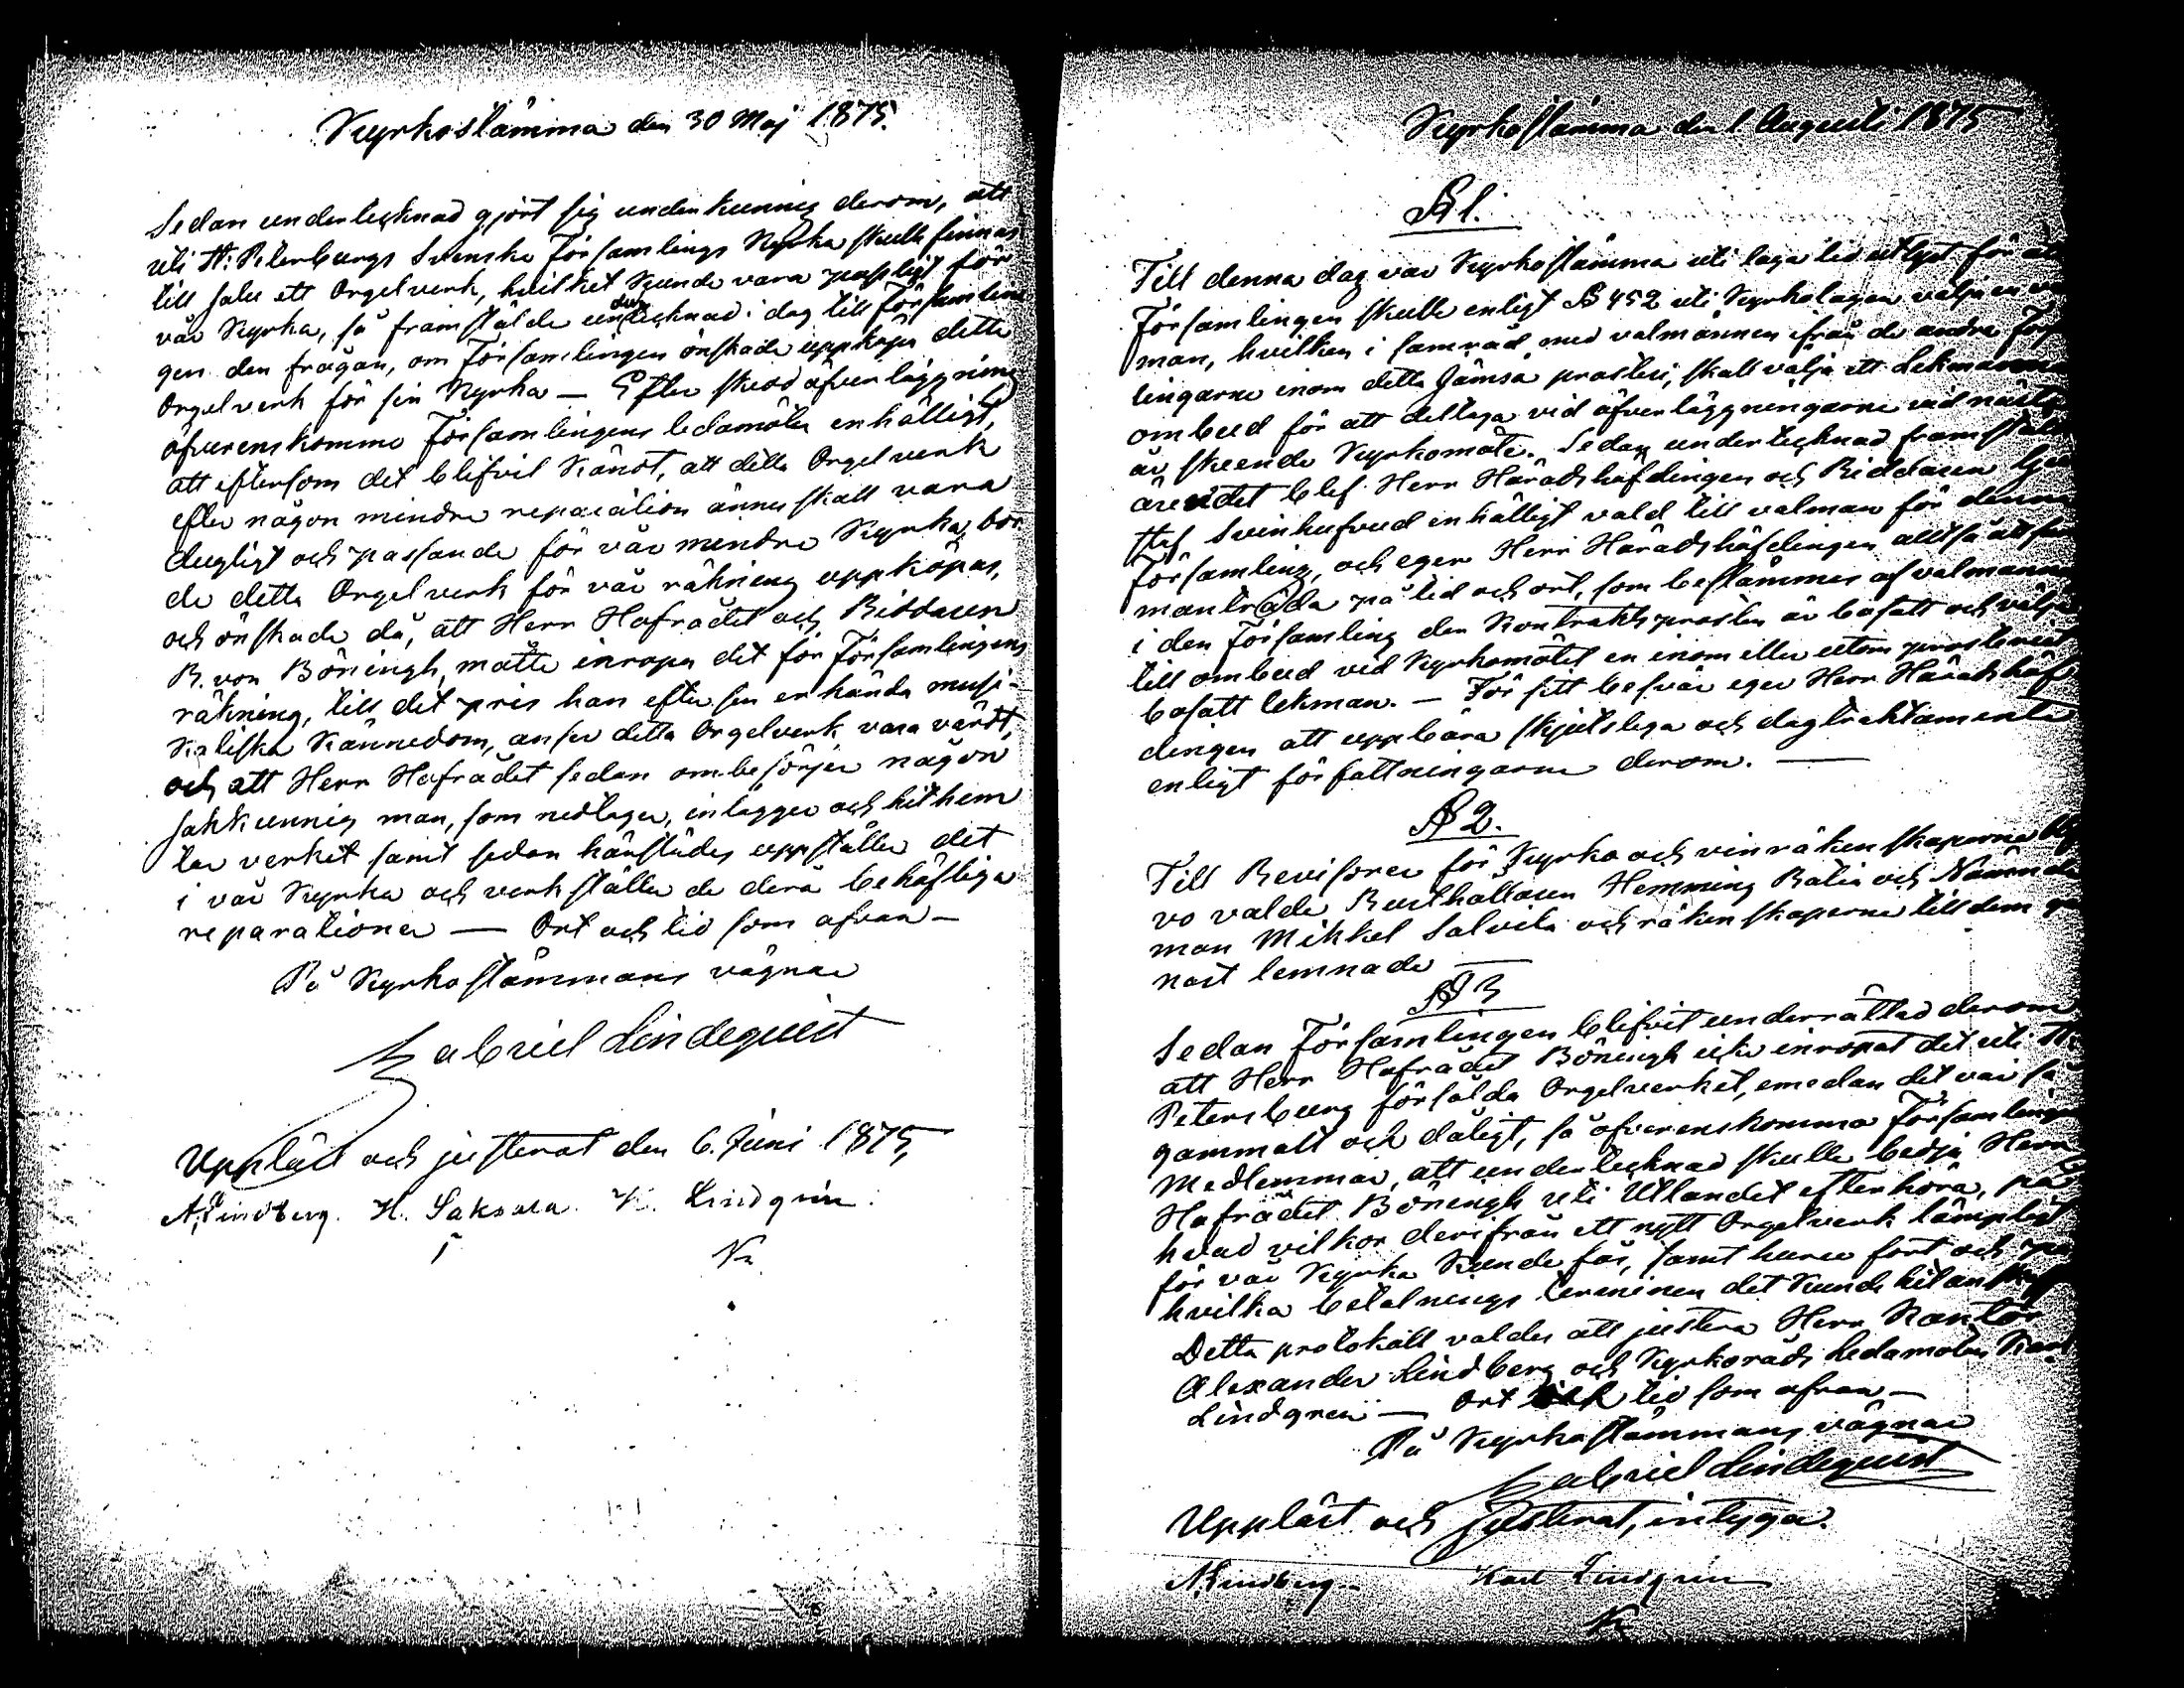 Kyrkostämma den 30 Maj 1875.
Sedan undertecknad gjort sig underkunnig derom, att
uti St: Petersburgs Svenska Församlings Kyrka skulle finnas
till salu ett Orgelverk, hvilket kunde vara passligt för
vår Kyrka, så framstälde undertecknad i dag till Församlin
gen den frågan, om Församlingen önskade uppköpa detta
Orgelverk för sin Kyrka — Efter skedd öfverläggning
öfverenskommo Församlingens ledamöter enhälligt,
att eftersom det blifvit kändt, att detta Orgelverk
efter någon mindre reparation ännu skall vara
dugligt och passande för vår mindre Kyrka, bor
de detta Orgelverk för vår räkning uppköpas,
och önskade då, att Herr Hofrådet och Riddaren
R. von Böningh, måtte inropa det för Församlingens
räkning, till det pris han efter sin erkända musi-
kaliska kännedom, anser detta Orgelverk vara värdt,
och att Herr Hofrådet sedan ombesörjer någon
sakkunnig man, som nedtager, inlägger och hithem
tar verket samt sedan härstädes uppställer det
i vår Kyrka och verkställer de derå behöfliga
reparationer — Ort och tid som ofvan —
På Kyrkostämmans vägnar
Gabriel Lindequist
Uppläst och justerat den 6. Juni 1875,
A. Lindberg. H. Saksala. K. Lindgrén.
Kyrkostämma den 1 Augusti 1875
§ 1.
Till denna dag var Kyrkostämma uti laga tid utlyst för att
Församlingen skulle enligt § 452 uti Kyrkolagen välja en
man, hvilken i samråd med valmännen ifrån de andra För
lingarne inom detta Jämsä prosteri, skall välja ett Lekmanna
ombud för att deltaga vid öfverläggningarne vid nästa
år skeende Kyrkomöte. Sedan undertecknad framstält
ärendet blef Herr Häradshöfdingen och Riddaren
Svinhufvud enhälligt vald till valman för denna
Församling, och eger Herr Häradshöfdingen alltså att sam
manträda på tid och ort, som bestämmes af valmännen
i den Församling der Kontraktsprosten är bosatt och välja
till ombud vid Kyrkomötet en inom eller utom prosteriet
bosatt lekman. — För sitt besvär eger Herr Häradshöf
dingen att uppbära skjutslega och dagtraktamente
enligt författningarne derom. —
§ 2.
Till Revisorer för Kyrko och vinräkenskaperne
vo valde Rusthållaren Hemming Rätiä och Nämnde
man Mikkel Salvila och räkenskaperne till dem
nast lemnade —
§ 3
Sedan Församlingen blifvit underrättad derom
att Herr Hofrådet Böningh icke inropat det uti St.
Petersburg försålda Orgelverket, emedan det var så
gammalt och dåligt, så öfverenskommo Församlingens
Medlemmar, att undertecknad skulle bedja Herr
Hofrådet Böningh uti Utlandet efterhöra, på
hvad vilkor derifrån ett nytt Orgelverk lämpligt
för vår Kyrka kunde fås, samt huru fort och på
hvilka betalnings terminer det kunde hitanskaf
Detta protokoll valdes att justera Herr Kantor
Alexander Lindberg och Kyrkoråds ledamoten Karl
Lindgren — Ort och tid som ofvan —
På Kyrkostämmans vägnar
Gabriel Lindequist
Uppläst och justerat, intyga.
A. Lindberg. Karl Lindgrén